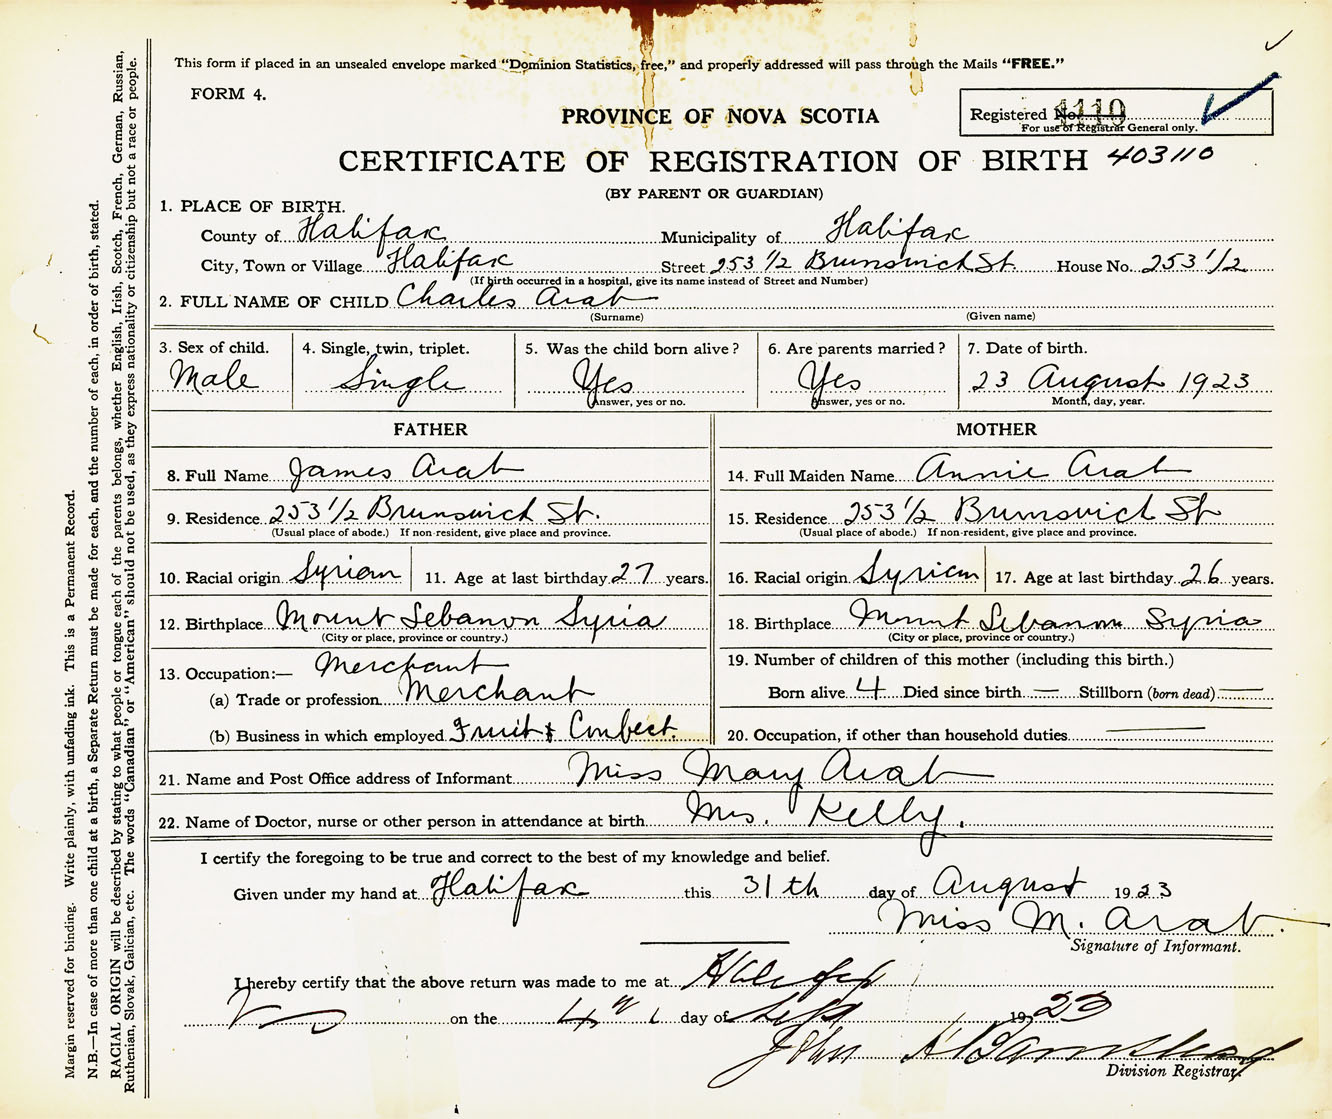 This form if placed in an unsealed envelope marked "Dominion Statistics, free," and properly addressed will pass through the Mails "FREE."
FORM 4.
PROVINCE OF NOVA SCOTIA
Registered No. 4110
For use of Registrar General only.
CERTIFICATE OF REGISTRATION OF BIRTH 403110
(BY PARENT OR GUARDIAN)
1. PLACE OF BIRTH.
County of Halifax Municipality of Halifax
City, Town or Village Halifax Street 253 1/2 Brunswick St. House No. 253 1/2
(If birth occurred in a hospital, give its name instead of Street and Number)
2. FULL NAME OF CHILD Charles Arab
(Surname) (Given name)
3. Sex of child. 4. Single, twin, triplet. 5. Was the child born alive? 6. Are parents married? 7. Date of birth.
Male Single Yes Yes 23 August 1923
Answer, yes or no. Answer, yes or no. Month, day, year.
FATHER MOTHER
8. Full Name James Arab 14. Full Maiden Name Annie Arab
9. Residence 253 1/2 Brunswick St. 15. Residence 253 1/2 Brunswick St
(Usual place of abode.) If non-resident, give place and province. (Usual place of abode.) If non-resident, give place and province.
10. Racial origin Syrian 11. Age at last birthday 27 years. 16. Racial origin Syrian 17. Age at last birthday 26 years.
12. Birthplace Mount Lebanon Syria 18. Birthplace Mount Lebanon Syria
(City or place, province or country.) (City or place, province or country.)
13. Occupation:— Merchant 19. Number of children of this mother (including this birth.)
(a) Trade or profession Merchant Born alive 4 Died since birth — Stillborn (born dead) —
(b) Business in which employed Fruit & Confect. 20. Occupation, if other than household duties —
21. Name and Post Office address of Informant Miss Mary Arab
22. Name of Doctor, nurse or other person in attendance at birth Mrs. Kelly.
I certify the foregoing to be true and correct to the best of my knowledge and belief.
Given under my hand at Halifax this 31th day of August 1923
Miss M. Arab.
Signature of Informant.
I hereby certify that the above return was made to me at Halifax
on the 4th day of Sept 1923
John A
Division Registrar.
Margin reserved for binding. Write plainly, with unfading ink. This is a Permanent Record.
N.B.—In case of more than one child at a birth, a Separate Return must be made for each, and the number of each, in order of birth, stated.
RACIAL ORIGIN will be described by stating to what people or tongue each of the parents belongs, whether English, Irish, Scotch, French, German, Russian,
Ruthenian, Slovak, Galician, etc. The words "Canadian" or "American" should not be used, as they express nationality or citizenship but not a race or people.